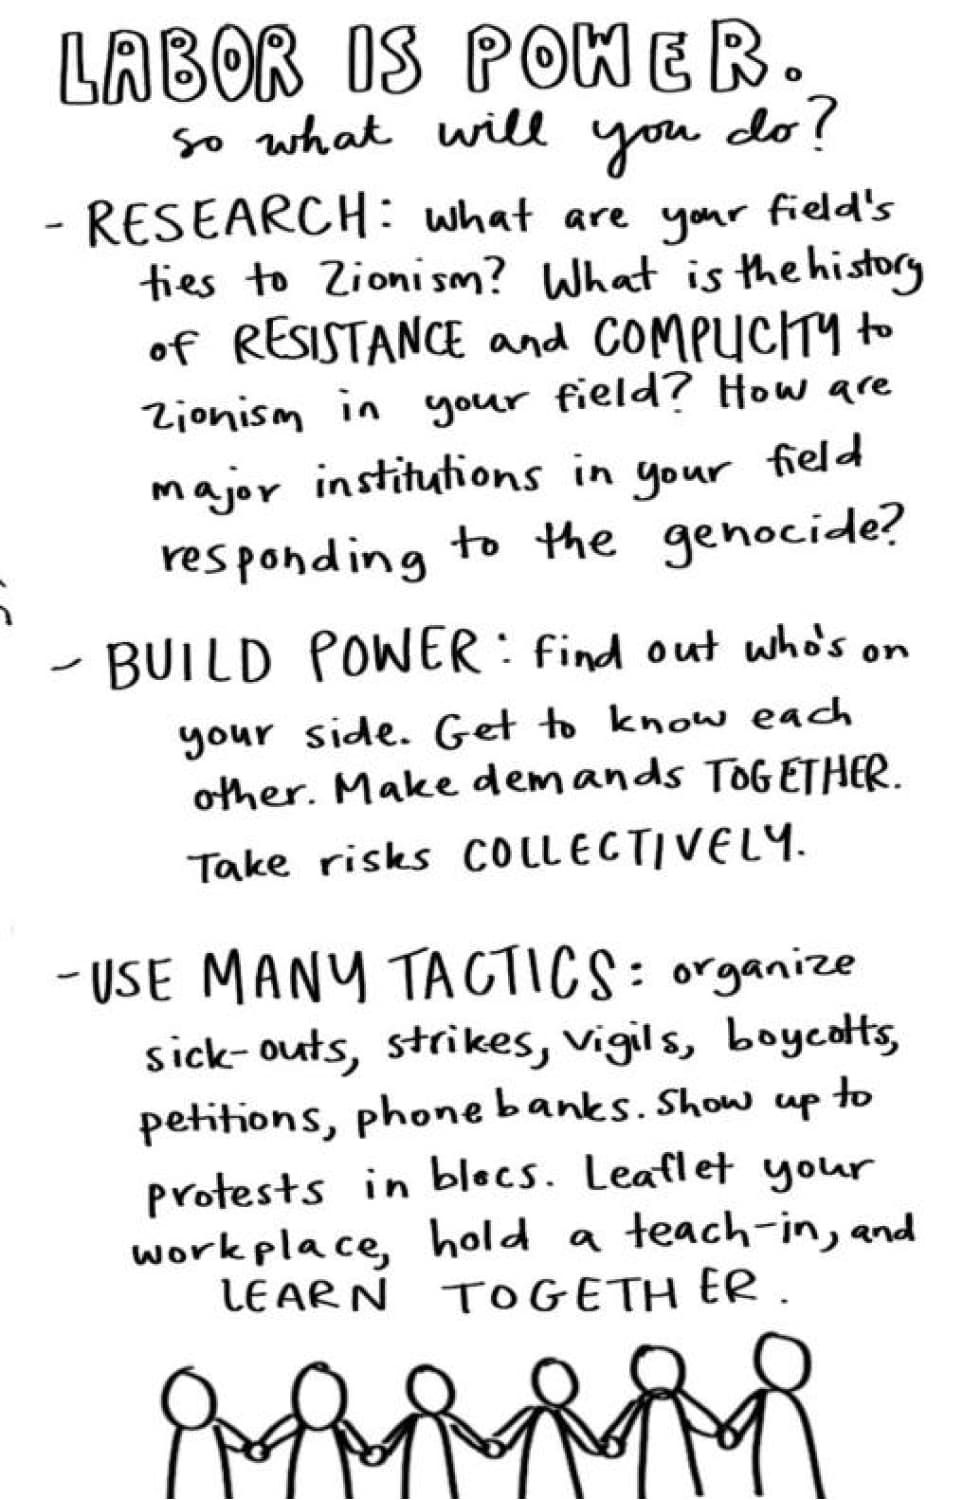 LABOR IS POWER.
so what will you do?
- RESEARCH: what are your field's
ties to Zionism? What is the history
of RESISTANCE and COMPLICITY to
zionism in your field? How are
major institutions in your field
responding to the genocide?
- BUILD POWER: find out who's on
your side. Get to know each
other. Make demands TOGETHER.
Take risks COLLECTIVELY.
- USE MANY TACTICS: organize
sick-outs, strikes, vigils, boycotts,
petitions, phone banks. Show up to
protests in blocs. Leaflet your
workplace, hold a teach-in, and
LEARN TOGETHER.